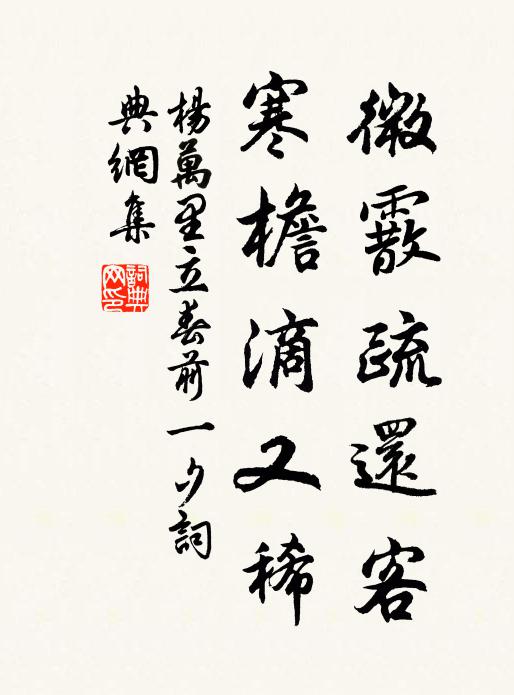 微霰疏還客
寒檐滴又稀
楊萬里立春前一夕詞
典網集
詞典
网印